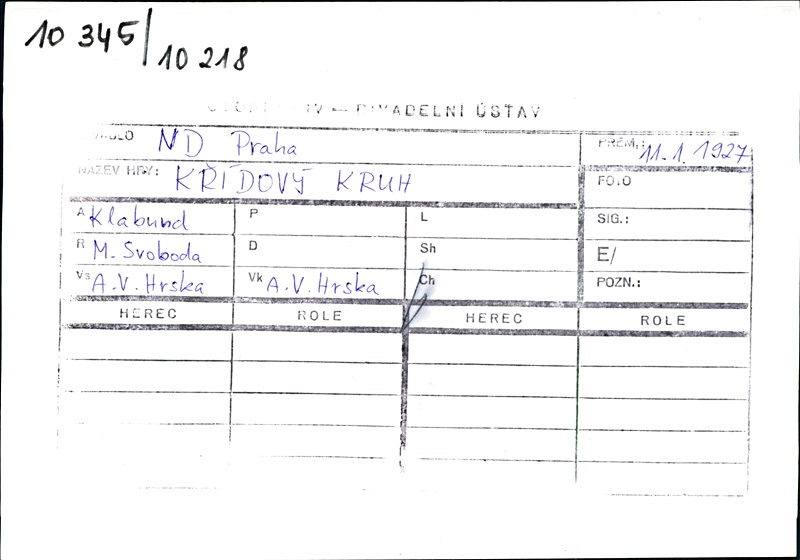 10 345/10 218
DIVADELNÍ ÚSTAV
DIVADLO ND Praha PREM.: 11. 1. 1927
NÁZEV HRY: KŘÍDOVÝ KRUH FOTO
A Klabund P L SIG.:
R M. Svoboda D Sh E/
Vs A. V. Hrska Vk A. V. Hrska Ch POZN.:
HEREC ROLE HEREC ROLE